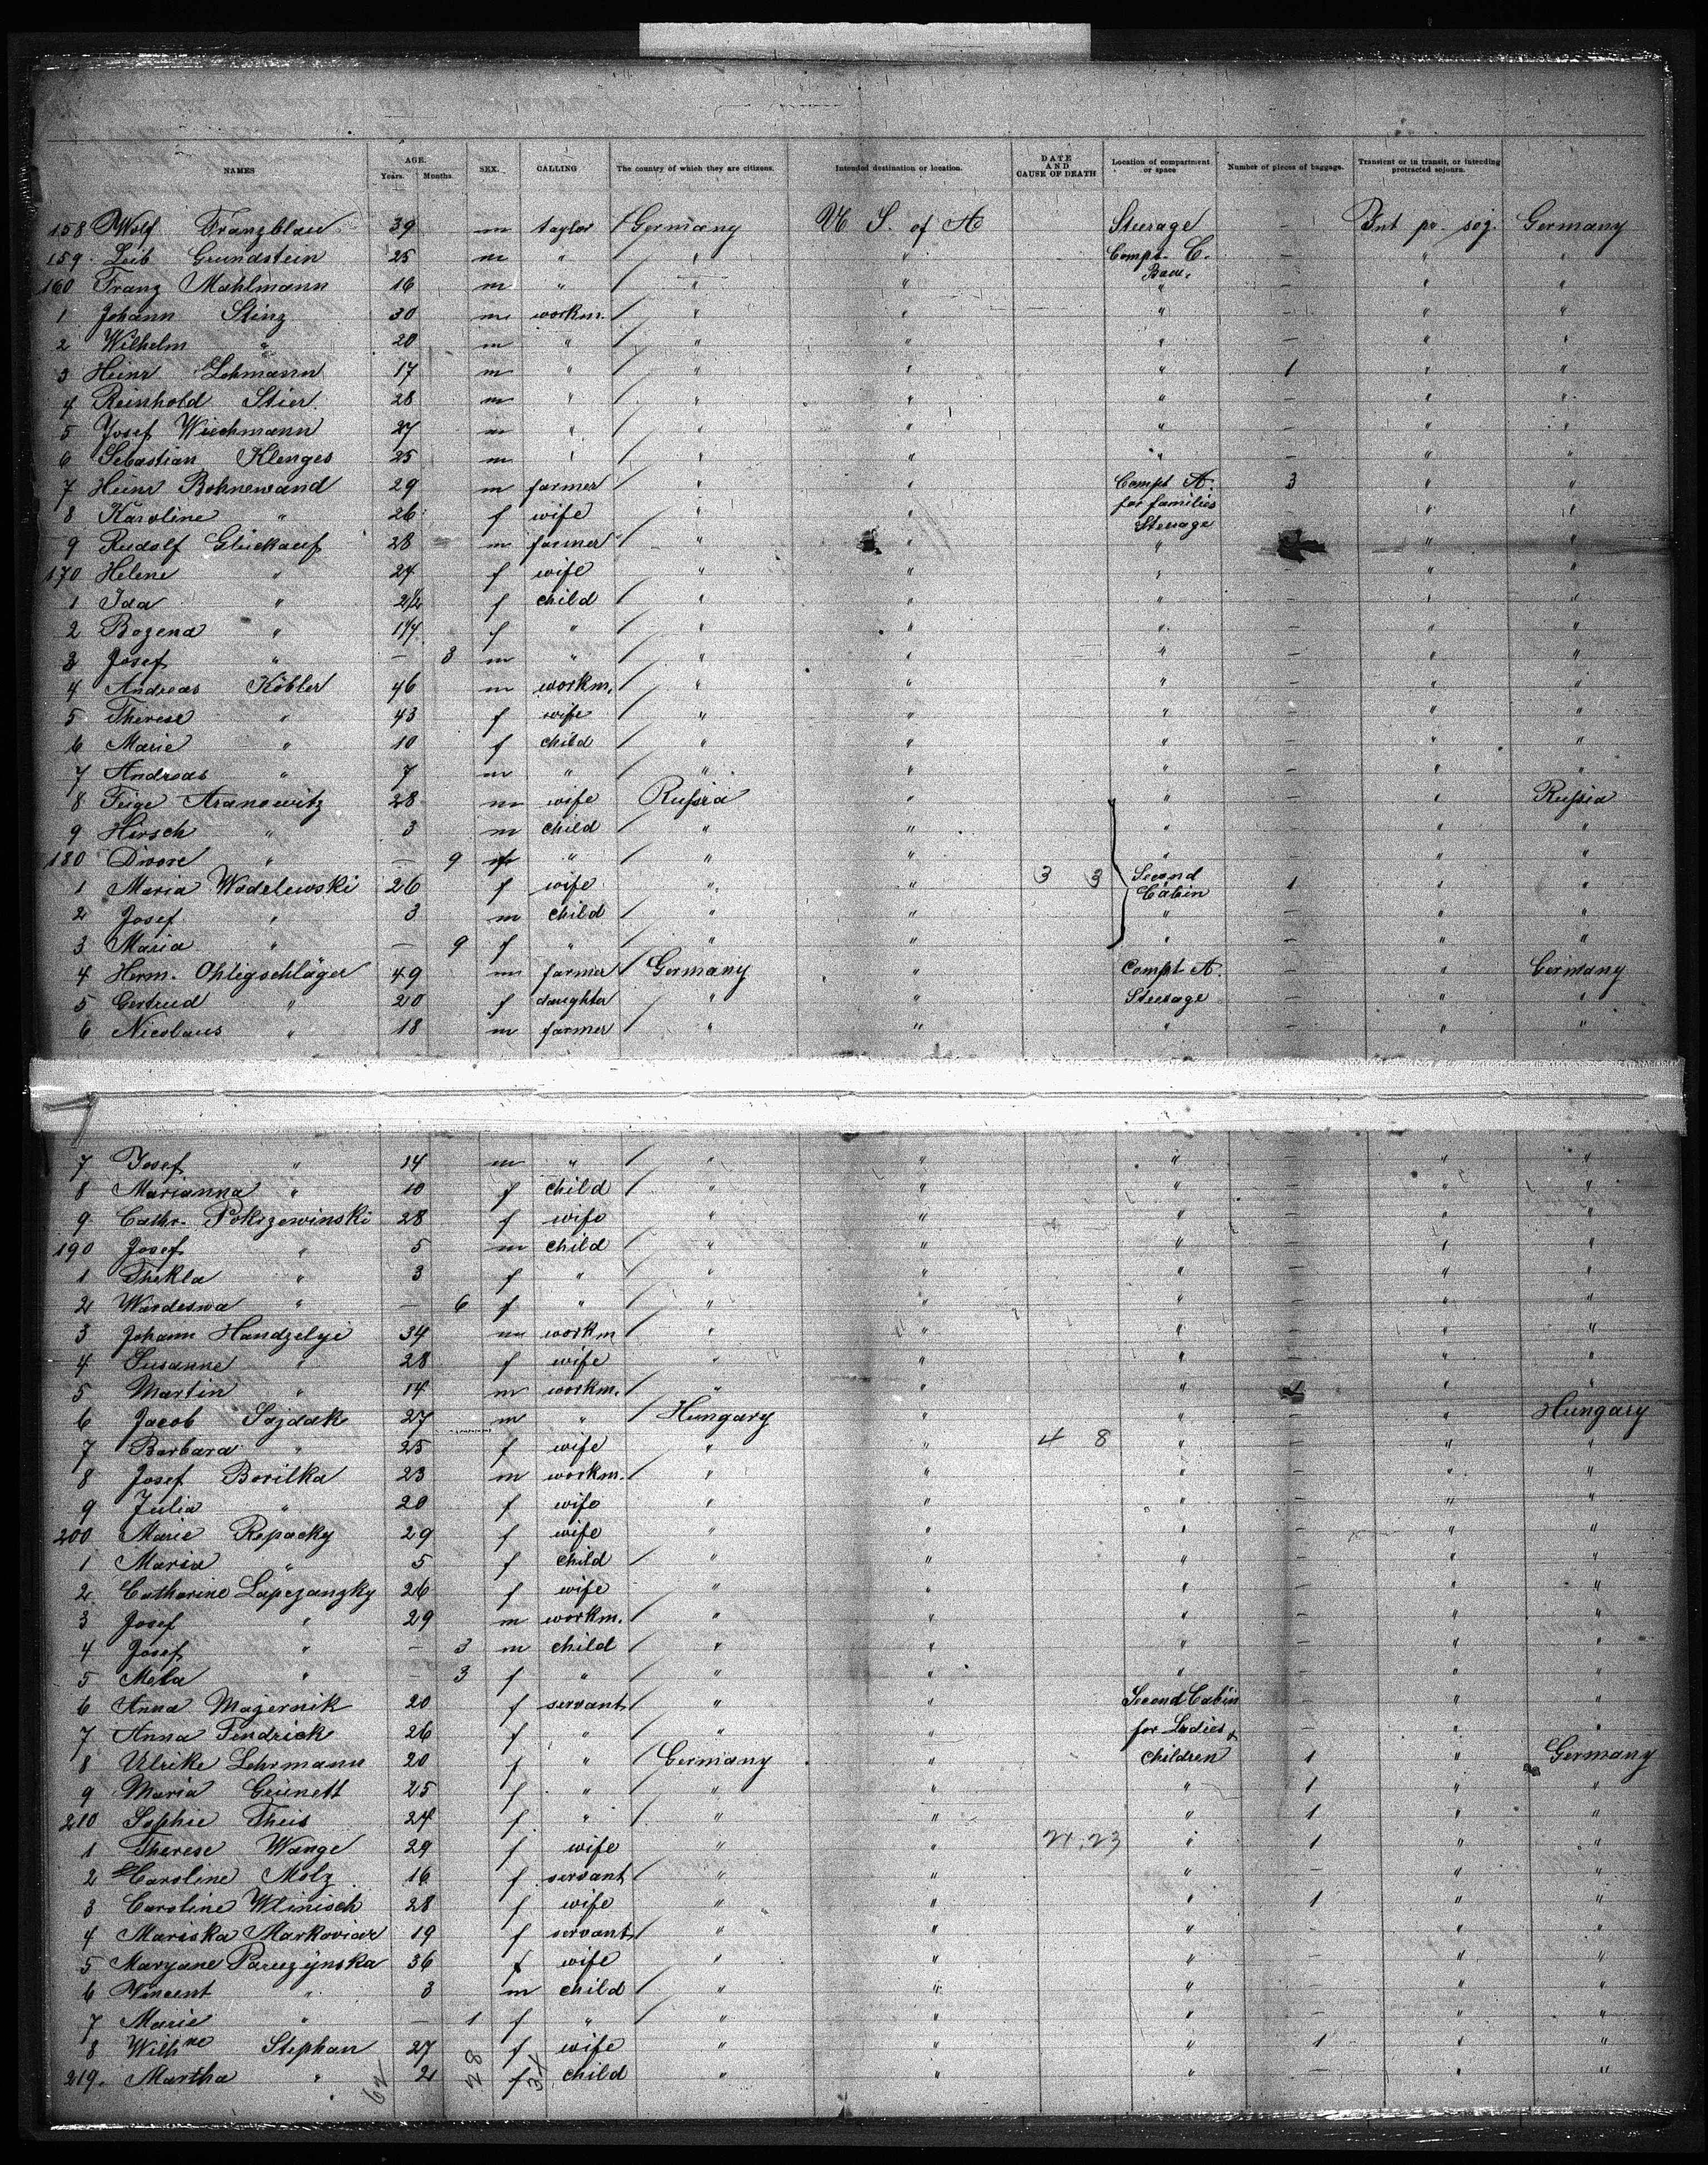 NAMES AGE. Years. Months. SEX. CALLING The country of which they are citizens. Intended destination or location. DATE AND CAUSE OF DEATH Location of compartment or space Number of pieces of baggage. Transient or in transit, or intending protracted sojourn.
158 Wolf Franzblau 39 m taylor / Germany U S. of A Steerage – Int pr. soj. Germany
159. Leib Grundstein 25 m " / " " Compt. C. – " "
160 Franz Mahlmann 16 m " / " " " – " "
1 Johann Stinz 30 m workm. / " " " – " "
2 Wilhelm " 20 m " / " " " – " "
3 Heinr Lehmann 17 m " / " " " 1 " "
4 Reinhold Stier. 28 m " / " " " – " "
5 Josef Wiechmann 27 m " / " " " – " "
6 Sebastian Klenges 25 m " / " " " – " "
7 Heinr Bohnewand 29 m farmer / " " Compt A. for families 3 " "
8 Karoline " 26 f wife / " " Steerage – " "
9 Rudolf Glückauf 28 m farmer / " " " " "
170 Helene " 24 f wife / " " " – " "
1 Ida " 2 1/2 f child / " " " – " "
2 Bozena " 1 1/4 f " / " " " – " "
3 Josef " – 3 m " / " " " – " "
4 Andreas Köbler 46 m workm. / " " " – " "
5 Therese " 43 f wife / " " " – " "
6 Marie " 10 f child / " " " – " "
7 Andreas " 7 m " / " " " – " "
8 Feige Aranowitz 28 m wife Russia " " – " Russia
9 Hirsch " 3 m child / " " " – " "
180 Dwore " – 9 f " / " " " – " "
1 Maria Wadelewski 26 f wife / " " 3 3 Second Cabin 1 " "
2 Josef " 3 m child / " " " – " "
3 Maria " – 9 f " / " " " – " "
4 Herm. Ohligschläger 49 m farmer / Germany " Compt A. – " Germany
5 Gertrud " 20 f daughter / " " Steerage – " "
6 Nicolaus " 18 m farmer / " " " – " "
7 Josef " 14 m " / " " " – " "
8 Marianna " 10 f child / " " " – " "
9 Cathr. Pokrzewinski 28 f wife / " " " – " "
190 Josef " 5 m child / " " " – " "
1 Thekla " 3 f " / " " " – " "
2 Wardeswa " – 6 f " / " " " – " "
3 Johann Handzelyi 34 m workm / " " " – " "
4 Susanne " 28 f wife / " " " – " "
5 Martin " 14 m workm. / " " " " "
6 Jacob Sajdak 27 m " / Hungary " " – " Hungary
7 Barbara " 25 f wife / " " 4 8 " – " "
8 Josef Borilka 23 m workm. / " " " – " "
9 Julia " 20 f wife / " " " – " "
200 Marie Repacky 29 f wife / " " " – " "
1 Maria " 5 f child / " " " – " "
2 Catharine Lapczanzky 26 f wife / " " " – " "
3 Josef " 29 m workm. / " " " – " "
4 Josef " – 3 m child / " " " – " "
5 Meta " – 3 f " / " " " – " "
6 Anna Majernik 20 f servant / " " Second Cabin – " "
7 Anna Fendrick 26 f " / " " for Ladies & – " "
8 Ulrike Lehrmann 20 f " / Germany " Children 1 " Germany
9 Maria Grünett 25 f " / " " " 1 " "
210 Sophie Theis 24 f " / " " " 1 " "
1 Therese Wange 29 f wife " " 21.23 " 1 " "
2 Caroline Molz 16 f servant / " " " – " "
3 Caroline Wlinisch 28 f wife / " " " 1 " "
4 Mariska 19 f servant / " " " – " "
5 Maryane Paruzynska 36 f wife / " " " – " "
6 Vincent " 3 m child / " " " – " "
7 Marie " – 1 f " / " " " – " "
8 Wilhne Stephan 27 f wife / " " " 1 " "
219. Martha " 2 f child / " " " – " "
62 28 34